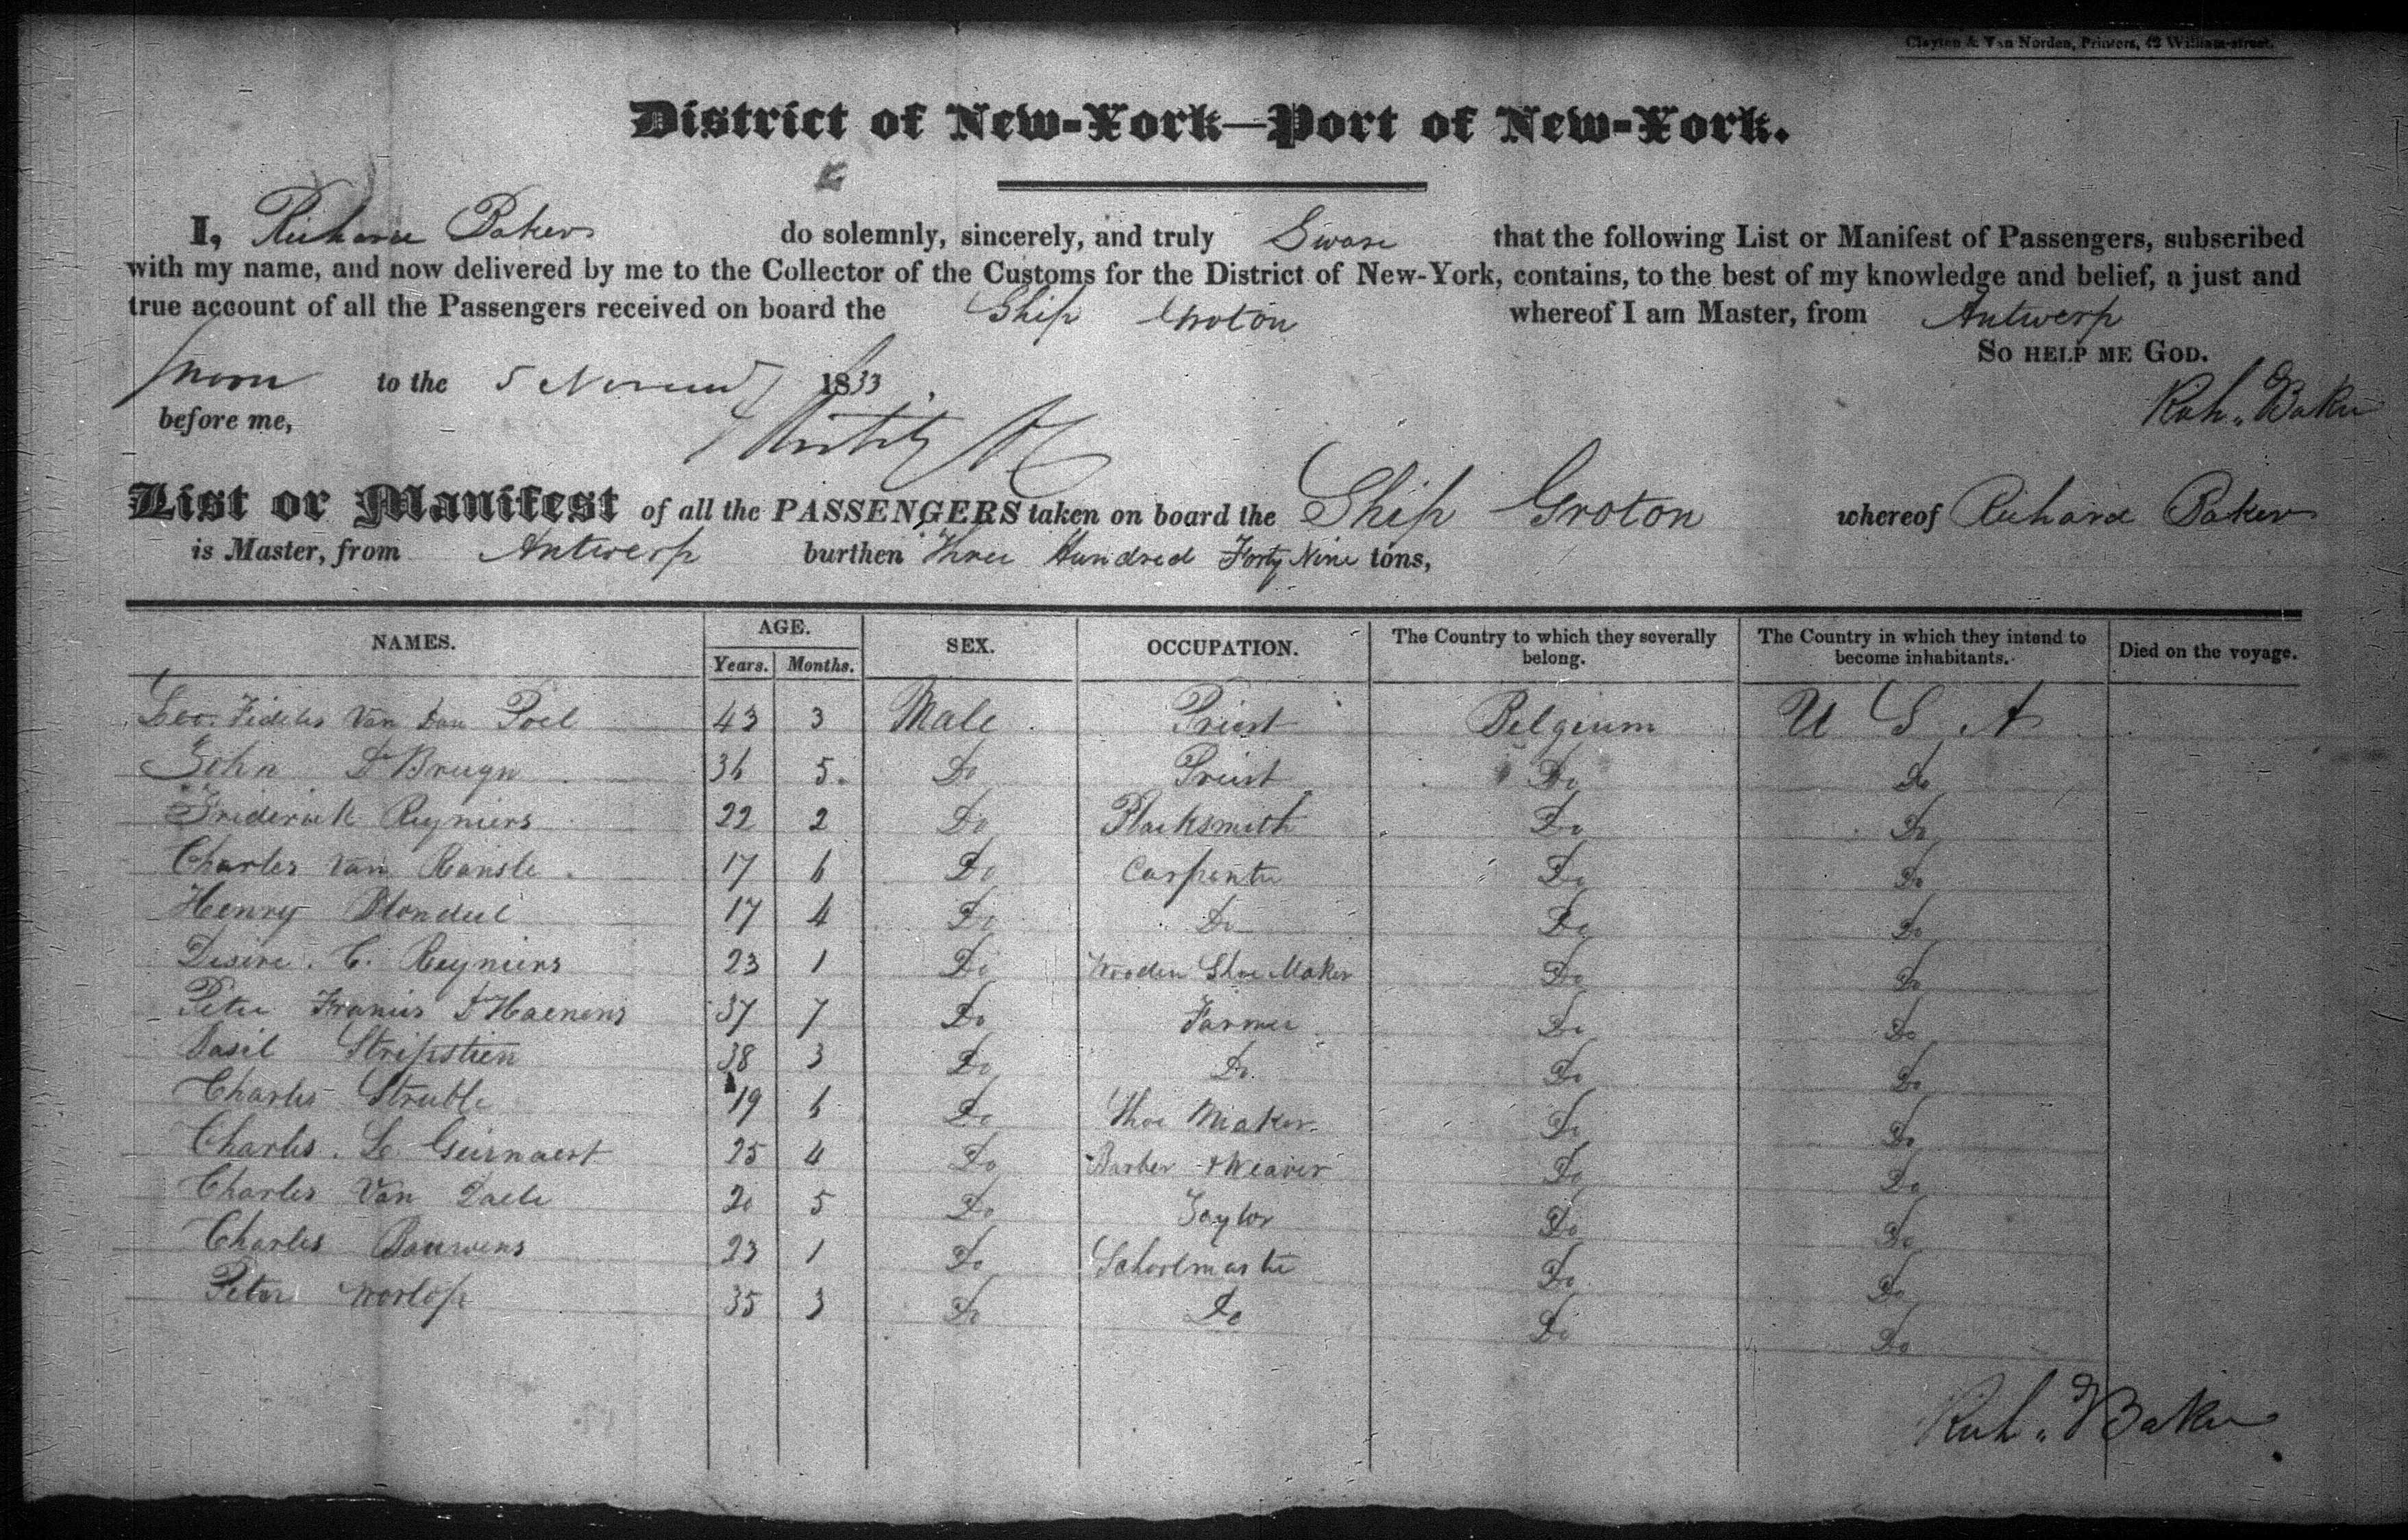 Clayton & Van Norden, Printers, 42 William-street.
District of New-York—Port of New-York.
I, Richard Baker do solemnly, sincerely, and truly Swear that the following List or Manifest of Passengers, subscribed
with my name, and now delivered by me to the Collector of the Customs for the District of New-York, contains, to the best of my knowledge and belief, a just and
true account of all the Passengers received on board the Ship Groton whereof I am Master, from Antwerp
So help me God.
Sworn to the 5 Novem 1833
before me,
Rich. Baker
List or Manifest of all the PASSENGERS taken on board the Ship Groton whereof Richard Baker
is Master, from Antwerp burthen Three Hundred Forty Nine tons,
NAMES. AGE. Years. Months. SEX. OCCUPATION. The Country to which they severally belong. The Country in which they intend to become inhabitants. Died on the voyage.
Leo. Fidelis Van Dan Poel 43 3 Male Priest Belgium U S A
John D'Bruyn 36 5 Do Priest Do Do
Friderick Reyniers 22 2 Do Blacksmith Do Do
Charles Van Ransle 17 6 Do Carpenter Do Do
Henry Blondeel 17 4 Do Do Do Do
Desire. C. Reyniers 23 1 Do Wooden Shoe Maker Do Do
Peter Francis D'Haenens 37 7 Do Farmer Do Do
Basil Stripstien 38 3 Do Do Do Do
Charles Strubbe 19 6 Do Shoe Maker Do Do
Charles. L. Geirnaert 25 4 Do Barber & Weaver Do Do
Charles Van Daele 20 5 Do Taylor Do Do
Charles Bauwens 23 1 Do Schoolmaster Do Do
Peter Worlop 35 3 Do Do Do Do
Rich. Baker